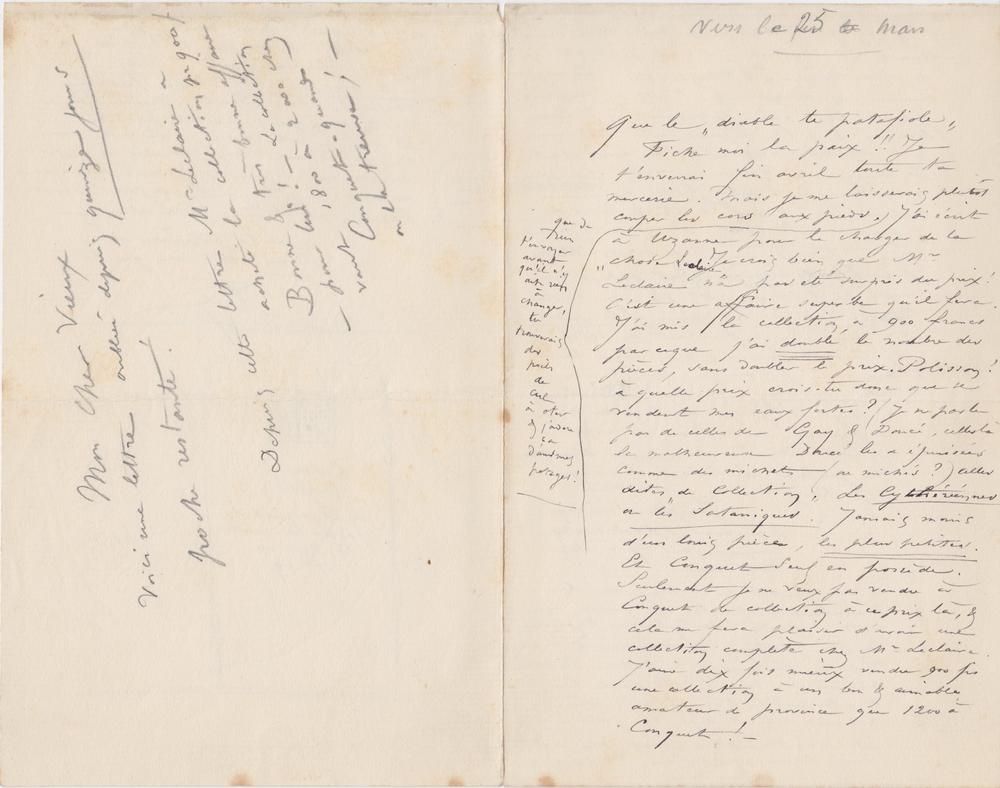 Mon Cher Vieux
Voici une lettre oubliée depuis quinze jours
poche restante!
Depuis cette lettre Mr Leclaire a
acheté la collection fr 900!
Bonne & très bonne affaire
pour lui! – La collection
vaut 1,800 ou 2000 chez
Conquet quand
on la trouve! –
Vers le 25 Mars
Que le „diable te patafiole„
Fiche moi la paix!! Je
t'enverrai fin avril toute ta
mercerie. Mais je me laisserais plutôt
couper les cors aux pieds,) J'ai écrit
à Uzanne pour le charger de la
„chose Leclaire. Je crois bien que Mr
Leclaire n'a pas été surpris du prix!
C'est une affaire superbe qu'il fera.
J'ai mis la collection, à 900 francs
parceque j'ai doublé le nombre des
pièces, sans doubler le prix. Polisson!
à quelle prix crois-tu donc que se
vendent mes eaux fortes? (Je ne parle
pas de celles de Gay & Doucé, celles là
le malheureux Doucé les a épuisées
comme des michets (ou michés?) Celles
dites „de Collection„ Les Cythéréennes
ou les Sataniques. Jamais moins
d'un louis pièce, les plus petites.
Et Conquet seul en possède.
Seulement je ne veux pas vendre à
Conquet de collection à ce prix là, &
cela me fera plaisir d'avoir une
collection complète chez Mr Leclaire.
J'aime dix fois mieux vendre 900 frs
une collection à un bon & aimable
amateur de province que 1200 à
Conquet! –
que de
rien
t'envoyer
avant
qu'il n'y
ait rien
à
changer,
tu
trouverais
des
poils
de
cul
à ôter
& j'adore
ça
dans mes
potages!